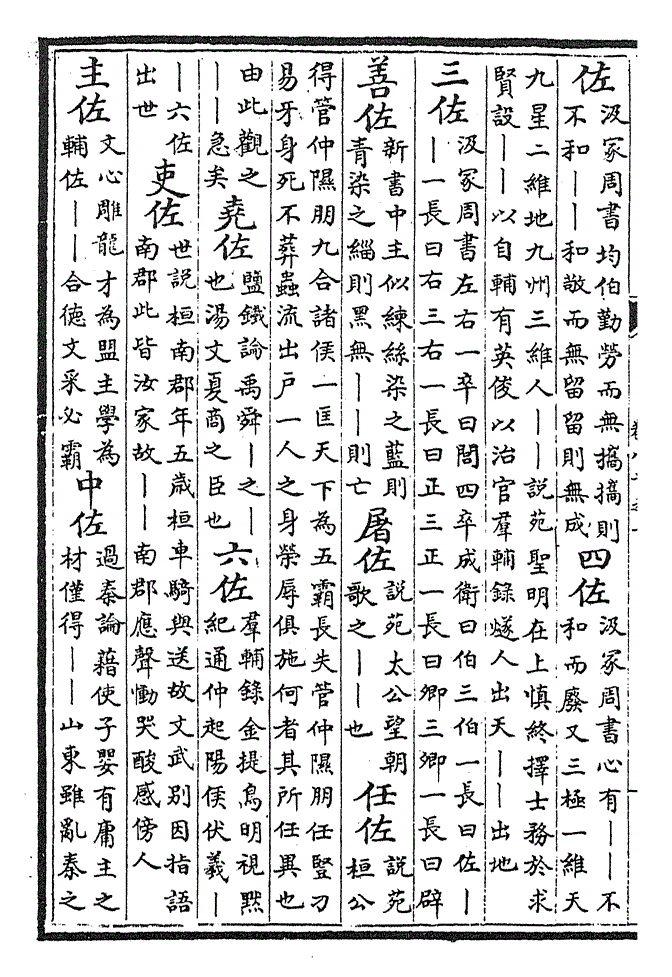 佐
汲冢周書均伯勤勞而無搞搞則
不和――和敬而無留留則無成
四佐
汲冢周書心有――不
和而廢又三極一維天
九星二維地九州三維人――說苑聖明在上慎終擇士務於求
賢設――以自輔有英俊以治官羣輔錄燧人出天――出地
三佐
汲冢周書左右一卒曰閭四卒成衛曰伯三伯一長曰佐―
―一長曰右三右一長曰正三正一長曰卿三卿一長曰辟
善佐
新書中主似練絲染之藍則
青染之緇則黑無――則亡
屠佐
說苑太公望朝
歌之――也
任佐
說苑
桓公
得管仲隰朋九合諸侯一匡天下為五霸長失管仲隰朋任豎刁
易牙身死不葬蟲流出戶一人之身榮辱俱施何者其所任異也
由此觀之
――急矣
堯佐
鹽鐵論禹舜―之―
也湯文夏商之臣也
六佐
羣輔錄金提鳥明視黙
紀通仲起陽侯伏羲―
―六佐
出世
吏佐
世說桓南郡年五歳桓車騎與送故文武別因指語
南郡此皆汝家故――南郡應聲慟哭酸感傍人
主佐
文心雕龍才為盟主學為
輔佐――合德文采必霸
中佐
過秦論藉使子嬰有庸主之
材僅得――山東雖亂秦之